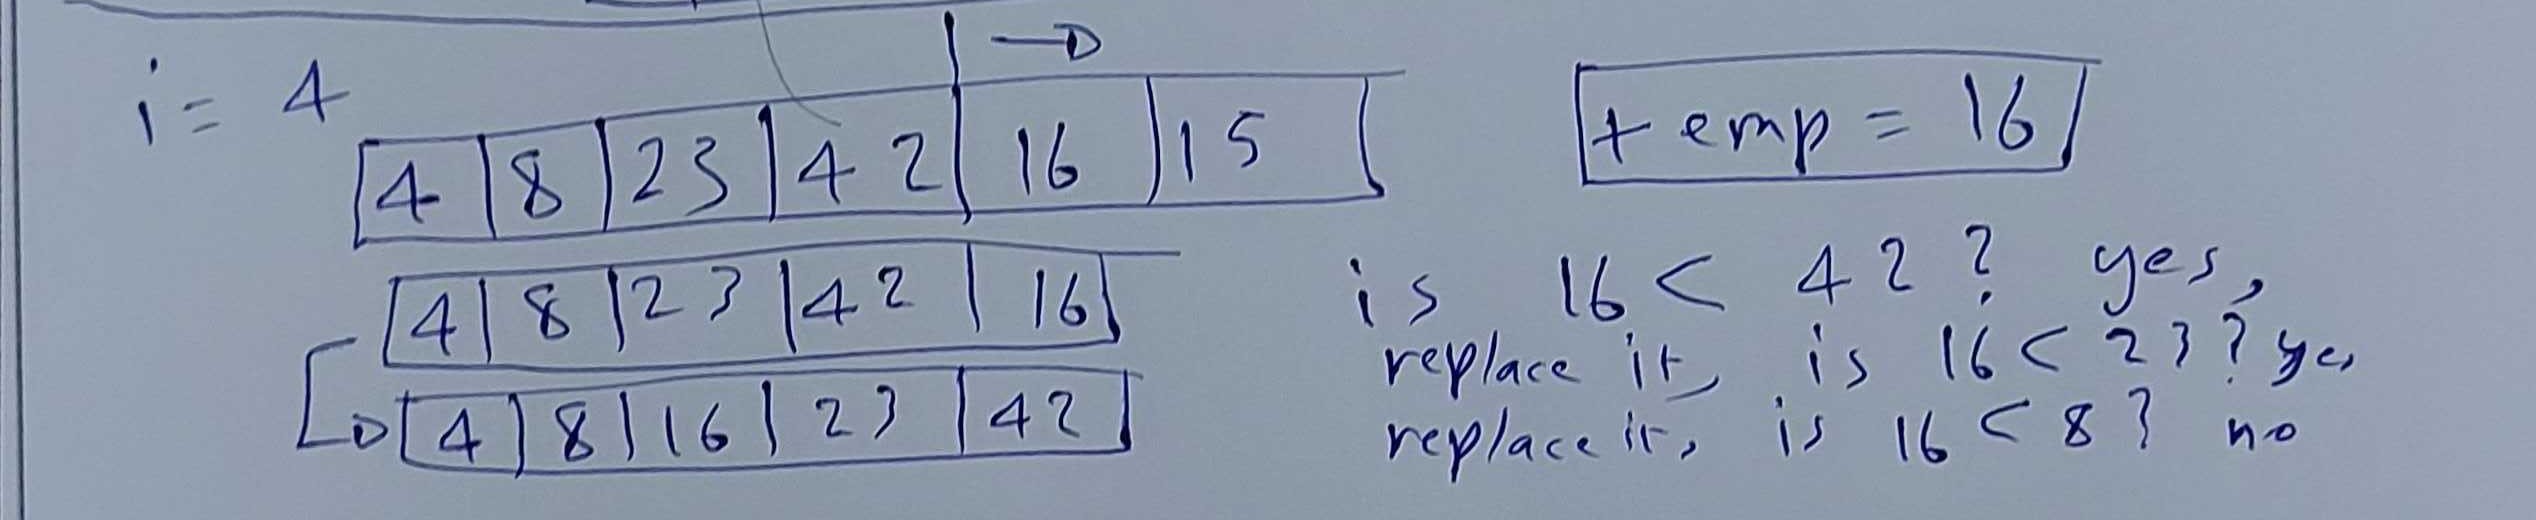 i = 4
4 8 23 42 16 15
temp = 16
4 8 23 42 16
4 8 16 23 42
is 16 < 42? yes,
replace it, is 16 < 23? yes
replace it, is 16 < 8? no